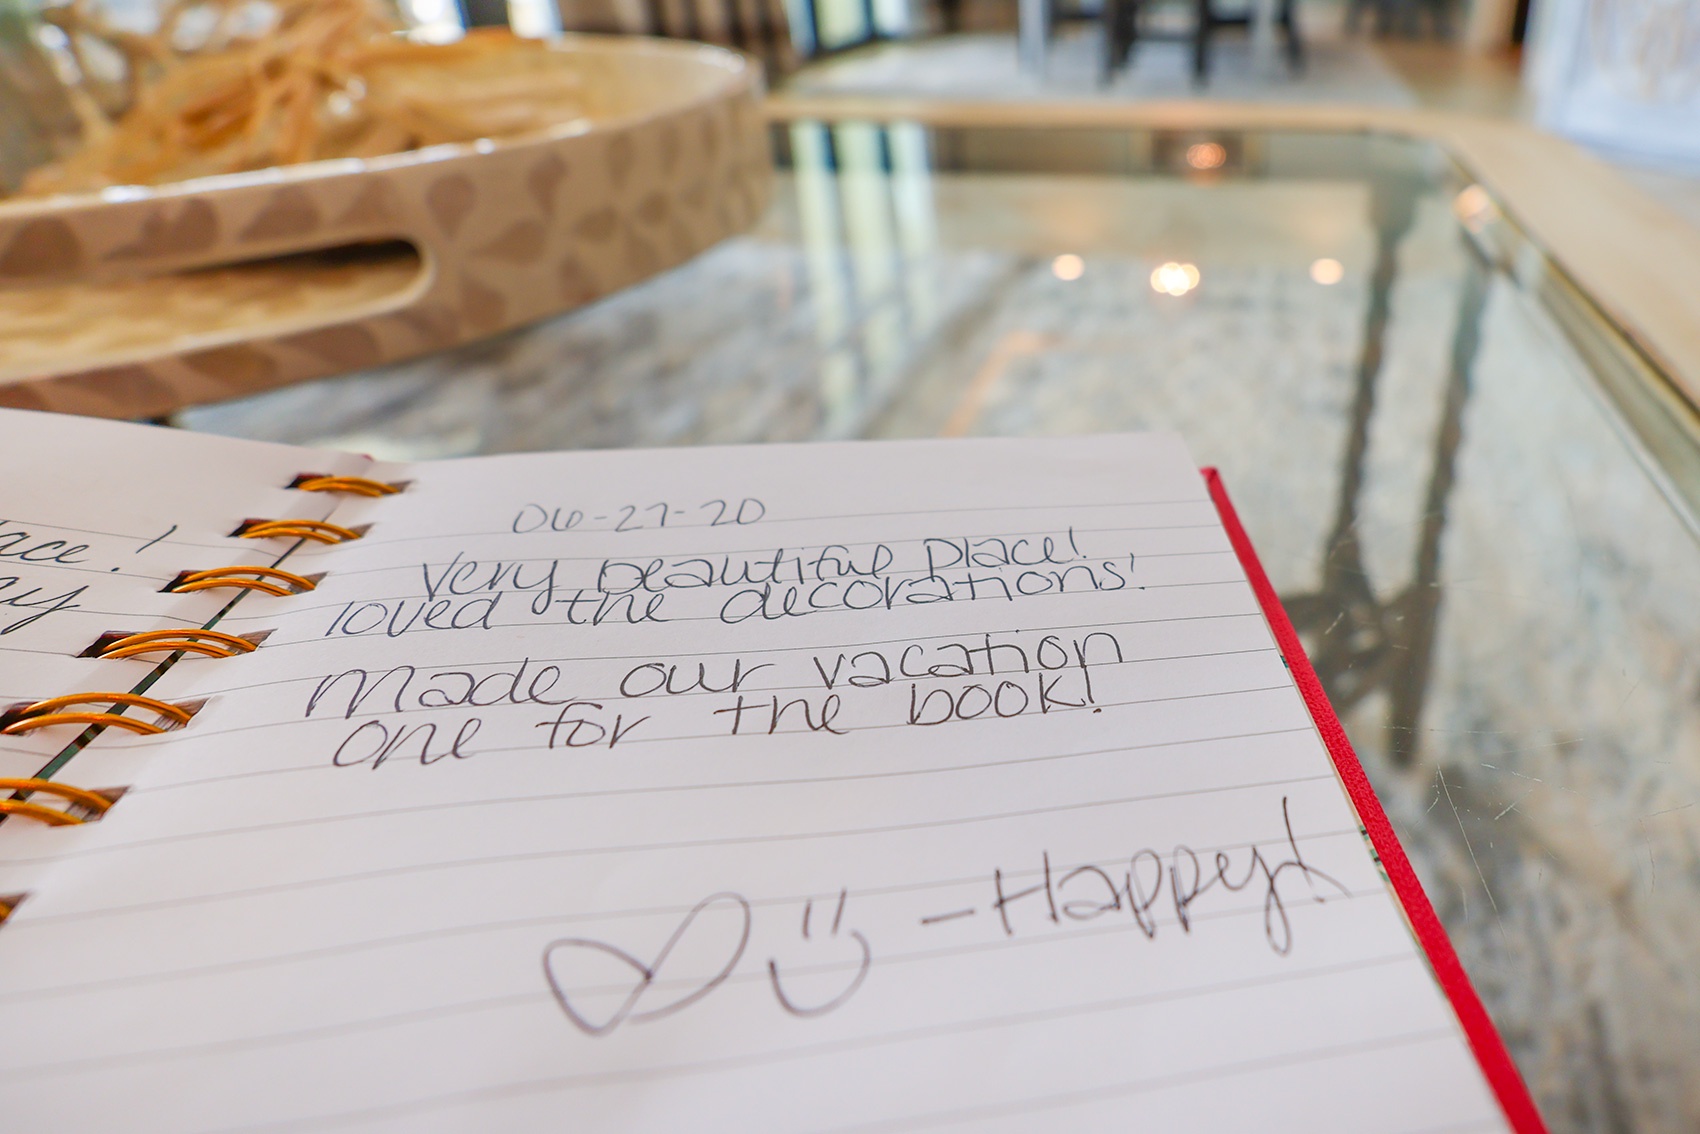 ace!
ey
06-27-20
Very beautiful place!
loved the decorations!
Made our vacation
one for the book!
-Happy!